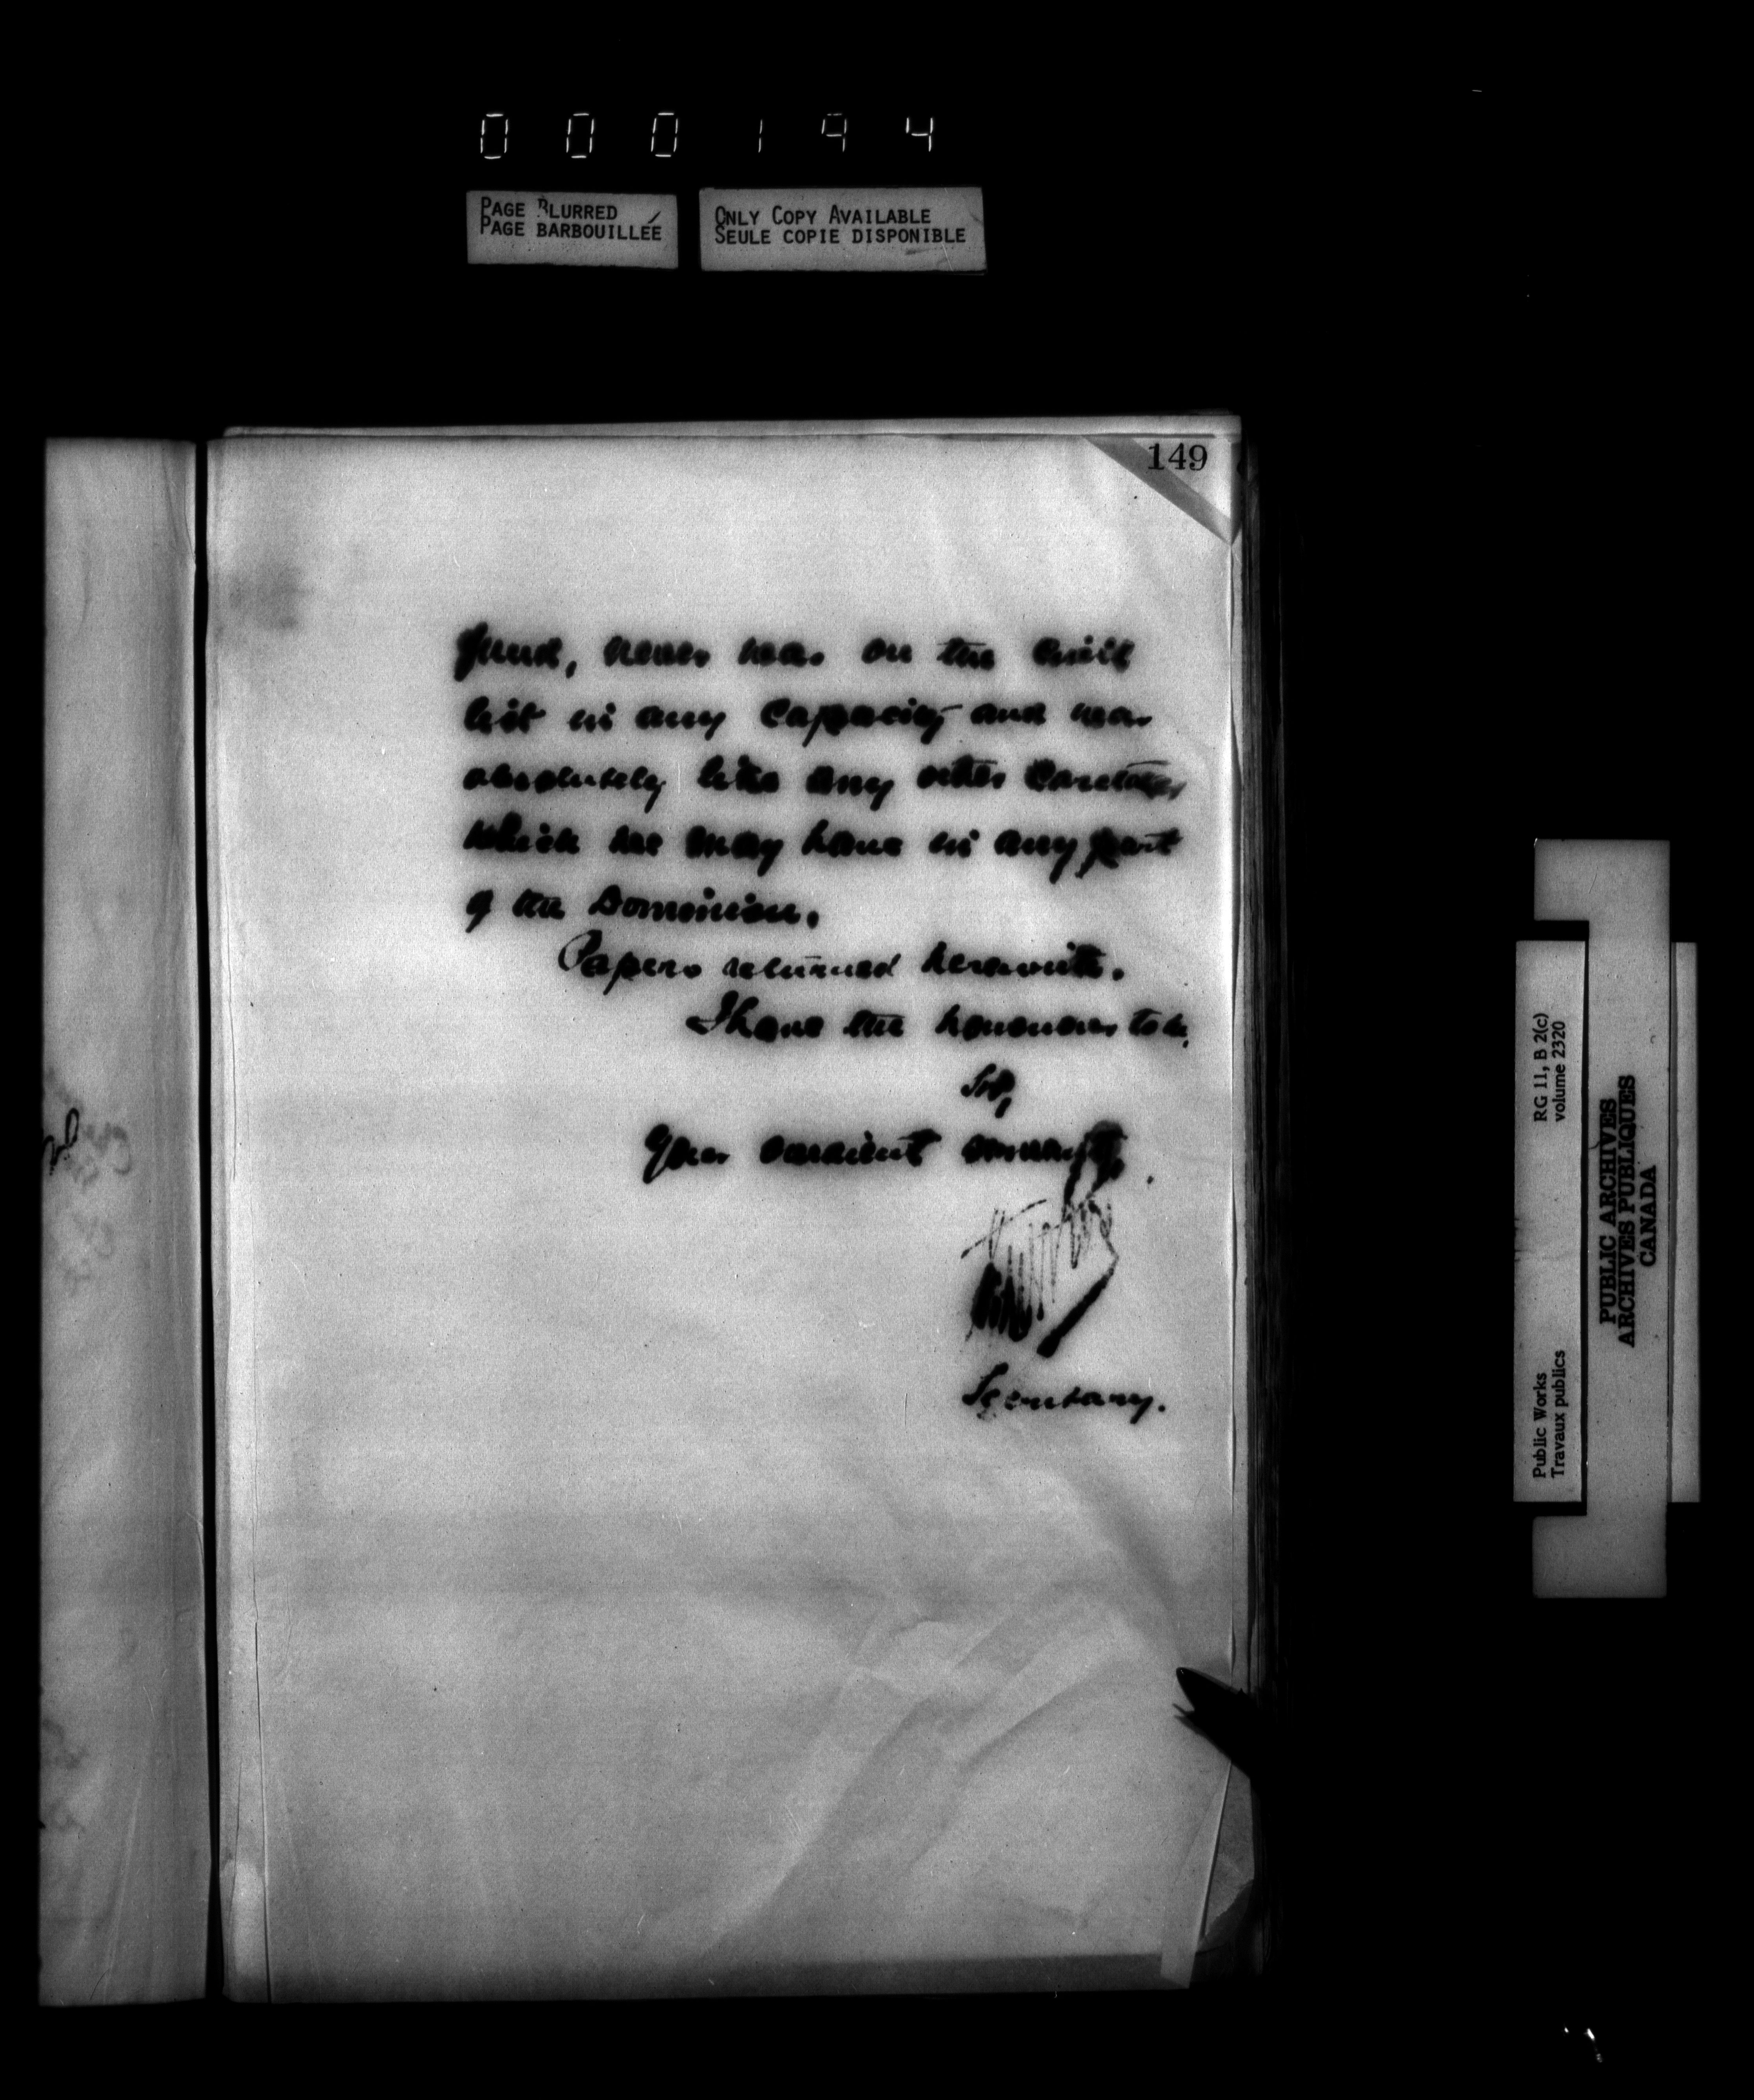 000194
PAGE BLURRED
PAGE BARBOUILLÉE
ONLY COPY AVAILABLE
SEULE COPIE DISPONIBLE
149
fund, never was on the civil
list in any capacity and was
absolutely like any other caretaker
which we may have in any part
of the Dominion.
Papers returned herewith.
I have the honour to be,
Sir,
Your obedient servant,
Secretary.
Public Works
Travaux publics
RG 11, B 2(c)
volume 2320
PUBLIC ARCHIVES
ARCHIVES PUBLIQUES
CANADA